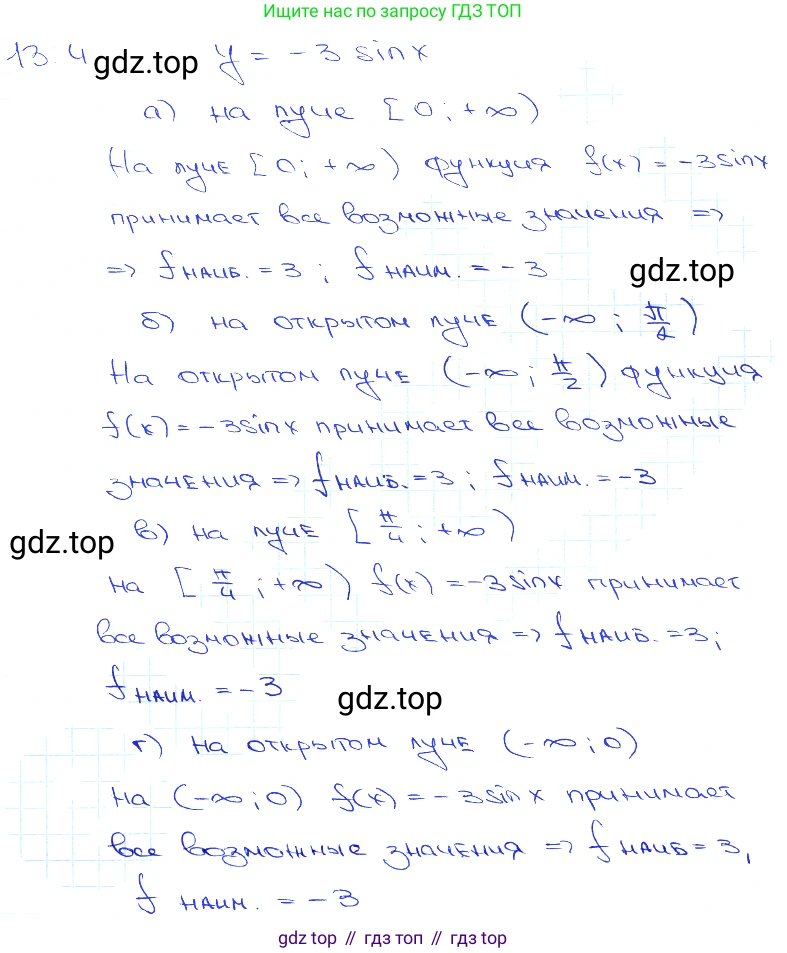 Ищите нас по запросу ГДЗ ТОП
13.4 gdz.top y = -3 sinx
а) на луче [0; +∞)
На луче [0; +∞) функция f(x) = -3sinx
принимает все возможные значения =>
=> f наиб. = 3 ; f наим. = -3
gdz.top
б) на открытом луче (-∞ ; π/2)
На открытом луче (-∞; π/2) функция
f(x) = -3sinx принимает все возможные
значения => f наиб. = 3 ; f наим. = -3
в) на луче [π/4 ; +∞)
gdz.top
на [π/4 ; +∞) f(x) = -3sinx принимает
все возможные значения => f наиб. = 3;
f наим. = -3
gdz.top
г) на открытом луче (-∞; 0)
на (-∞; 0) f(x) = -3sinx принимает
все возможные значения => f наиб = 3,
f наим. = -3
gdz top // гдз топ // gdz top